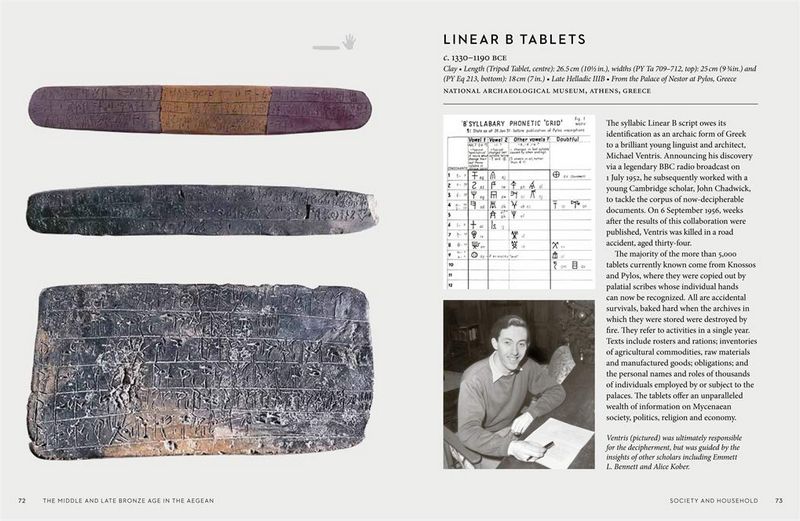 LINEAR B TABLETS
c. 1330–1190 BCE
Clay • Length (Tripod Tablet, centre): 26.5 cm (10½ in.), widths (PY Ta 709–712, top): 25 cm (9¾ in.) and
(PY Eq 213, bottom): 18 cm (7 in.) • Late Helladic IIIB • From the Palace of Nestor at Pylos, Greece
NATIONAL ARCHAEOLOGICAL MUSEUM, ATHENS, GREECE
'B' SYLLABARY PHONETIC "GRID"
Fig. 1
State as of 28 Jan 51: before publication of Pylos inscriptions
Vowel 1 Vowel 2 Other vowels? Doubtful
1
2
3
4
5
6
7
8
9
10
11
12
The syllabic Linear B script owes its
identification as an archaic form of Greek
to a brilliant young linguist and architect,
Michael Ventris. Announcing his discovery
via a legendary BBC radio broadcast on
1 July 1952, he subsequently worked with a
young Cambridge scholar, John Chadwick,
to tackle the corpus of now-decipherable
documents. On 6 September 1956, weeks
after the results of this collaboration were
published, Ventris was killed in a road
accident, aged thirty-four.
The majority of the more than 5,000
tablets currently known come from Knossos
and Pylos, where they were copied out by
palatial scribes whose individual hands
can now be recognized. All are accidental
survivals, baked hard when the archives in
which they were stored were destroyed by
fire. They refer to activities in a single year.
Texts include rosters and rations; inventories
of agricultural commodities, raw materials
and manufactured goods; obligations; and
the personal names and roles of thousands
of individuals employed by or subject to the
palaces. The tablets offer an unparalleled
wealth of information on Mycenaean
society, politics, religion and economy.
Ventris (pictured) was ultimately responsible
for the decipherment, but was guided by the
insights of other scholars including Emmett
L. Bennett and Alice Kober.
72 THE MIDDLE AND LATE BRONZE AGE IN THE AEGEAN
SOCIETY AND HOUSEHOLD 73